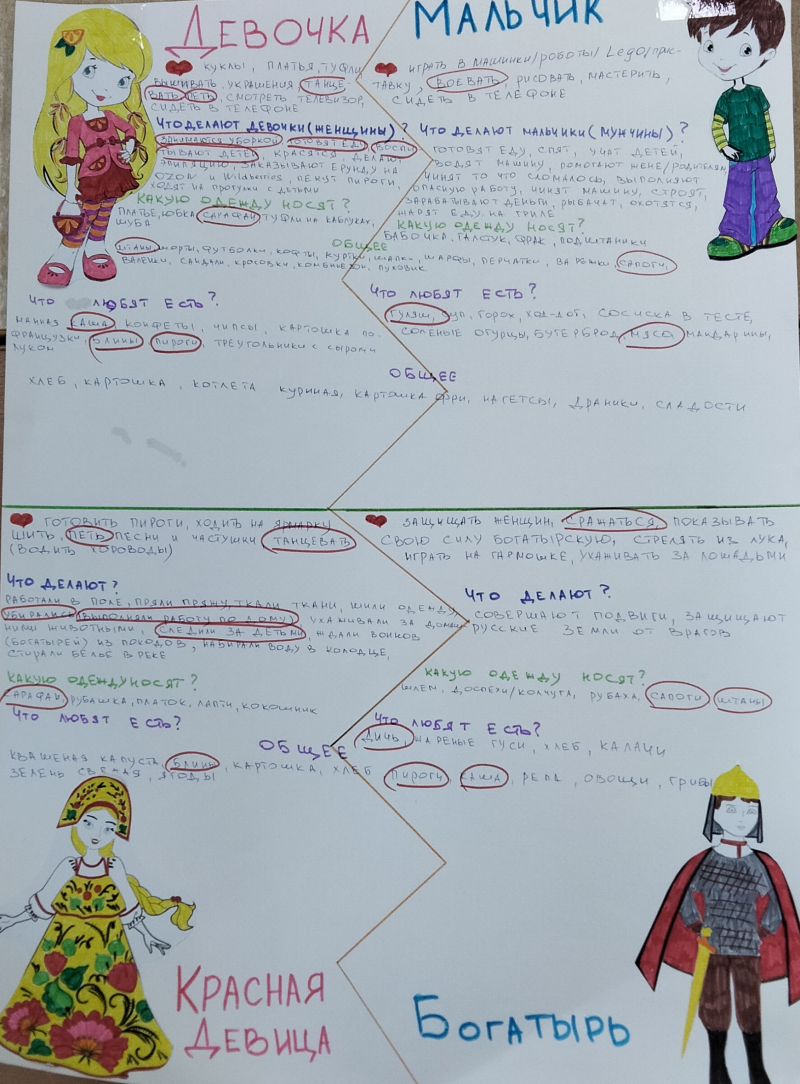 ДЕВОЧКА
КУКЛЫ, ПЛАТЬЯ, ТУФЛИ
ВЫШИВАТЬ, УКРАШЕНИЯ, ТАНЦЕ-
ВАТЬ, ПЕТЬ, СМОТРЕТЬ ТЕЛЕВИЗОР,
СИДЕТЬ В ТЕЛЕФОНЕ
ЧТО ДЕЛАЮТ ДЕВОЧКИ (ЖЕНЩИНЫ)?
ЗАНИМАЮТСЯ УБОРКОЙ, ГОТОВЯТ ЕДУ, ВОСПИ-
ТЫВАЮТ ДЕТЕЙ, КРАСЯТСЯ, ДЕЛАЮТ
ЭПИЛЯЦИЮ, ЗАКАЗЫВАЮТ ЕРУНДУ НА
OZON и Wildberries, ПЕКУТ ПИРОГИ,
ХОДЯТ НА ПРОГУЛКИ С ДЕТЬМИ
КАКУЮ ОДЕЖДУ НОСЯТ?
ПЛАТЬЕ, ЮБКА, САРАФАН, ТУФЛИ НА КАБЛУКАХ,
ШУБА
МАЛЬЧИК
ИГРАТЬ В МАШИНКИ/РОБОТЫ/Lego/ПРИС-
ТАВКУ, ВОЕВАТЬ, РИСОВАТЬ, МАСТЕРИТЬ,
СИДЕТЬ В ТЕЛЕФОНЕ
ЧТО ДЕЛАЮТ МАЛЬЧИКИ (МУЖЧИНЫ)?
ГОТОВЯТ ЕДУ, СПЯТ, УЧАТ ДЕТЕЙ,
ВОДЯТ МАШИНУ, ПОМОГАЮТ ЖЕНЕ/РОДИТЕЛЯМ,
ЧИНЯТ ТО ЧТО СЛОМАЛОСЬ, ВЫПОЛНЯЮТ
ОПАСНУЮ РАБОТУ, ЧИНЯТ МАШИНУ, СТРОЯТ,
ЗАРАБАТЫВАЮТ ДЕНЬГИ, РЫБАЧАТ, ОХОТЯТСЯ,
ЖАРЯТ ЕДУ НА ГРИЛЕ
КАКУЮ ОДЕЖДУ НОСЯТ?
БАБОЧКА, ГАЛСТУК, ФРАК, ПОДШТАНИКИ
ОБЩЕЕ
ШТАНЫ, ШОРТЫ, ФУТБОЛКИ, КОФТЫ, КУРТКИ, ШАПКИ, ШАРФЫ, ПЕРЧАТКИ, ВАРЕЖКИ, САПОГИ,
ВАЛЕНКИ, САНДАЛИ, КРОСОВКИ, КОМБИНЕЗОН, ПУХОВИК
ЧТО ЛЮБЯТ ЕСТЬ?
МАННАЯ КАША, КОНФЕТЫ, ЧИПСЫ, КАРТОШКА ПО-
ФРАНЦУЗКИ, БЛИНЫ, ПИРОГИ, ТРЕУГОЛЬНИКИ С СЫРОМ И
ЛУКОМ
ЧТО ЛЮБЯТ ЕСТЬ?
ГУЛЯШ, СУП, ГОРОХ, ХОД-ДОГ, СОСИСКА В ТЕСТЕ,
СОЛЕНЫЕ ОГУРЦЫ, БУТЕРБРОД, МЯСО, МАНДАРИНЫ,
ОБЩЕЕ
ХЛЕБ, КАРТОШКА, КОТЛЕТА КУРИНАЯ, КАРТОШКА ФРИ, НАГЕТСЫ, ДРАНИКИ, СЛАДОСТИ
ГОТОВИТЬ ПИРОГИ, ХОДИТЬ НА ЯРМАРКУ
ШИТЬ, ПЕТЬ ПЕСНИ И ЧАСТУШКИ, ТАНЦЕВАТЬ
(ВОДИТЬ ХОРОВОДЫ)
ЧТО ДЕЛАЮТ?
РАБОТАЛИ В ПОЛЕ, ПРЯЛИ ПРЯЖУ, ТКАЛИ ТКАНИ, ШИЛИ ОДЕЖДУ,
УБИРАЛИСЬ (ВЫПОЛНЯЛИ РАБОТУ ПО ДОМУ), УХАЖИВАЛИ ЗА ДОМАШ-
НИМИ ЖИВОТНЫМИ, СЛЕДИЛИ ЗА ДЕТЬМИ, ЖДАЛИ ВОИНОВ
(БОГАТЫРЕЙ) ИЗ ПОХОДОВ, НАБИРАЛИ ВОДУ В КОЛОДЦЕ,
СТИРАЛИ БЕЛЬЕ В РЕКЕ
КАКУЮ ОДЕЖДУ НОСЯТ?
САРАФАН, РУБАШКА, ПЛАТОК, ЛАПТИ, КОКОШНИК
ЧТО ЛЮБЯТ ЕСТЬ?
КВАШЕНАЯ КАПУСТА,
ЗЕЛЕНЬ СВЕЖАЯ, ЯГОДЫ
ЗАЩИЩАТЬ ЖЕНЩИН, СРАЖАТЬСЯ, ПОКАЗЫВАТЬ
СВОЮ СИЛУ БОГАТЫРСКУЮ, СТРЕЛЯТЬ ИЗ ЛУКА,
ИГРАТЬ НА ГАРМОШКЕ, УХАЖИВАТЬ ЗА ЛОШАДЬМИ
ЧТО ДЕЛАЮТ?
СОВЕРШАЮТ ПОДВИГИ, ЗАЩИЩАЮТ
РУССКИЕ ЗЕМЛИ ОТ ВРАГОВ
КАКУЮ ОДЕЖДУ НОСЯТ?
ШЛЕМ, ДОСПЕХИ/КОЛЧУГА, РУБАХА, САПОГИ, ШТАНЫ
ЧТО ЛЮБЯТ ЕСТЬ?
ДИЧЬ, ЖАРЕНЫЕ ГУСИ, ХЛЕБ, КАЛАЧИ
ОБЩЕЕ
БЛИНЫ, КАРТОШКА, ХЛЕБ, ПИРОГИ, КАША, РЕПА, ОВОЩИ, ГРИБЫ
КРАСНАЯ
ДЕВИЦА
БОГАТЫРЬ